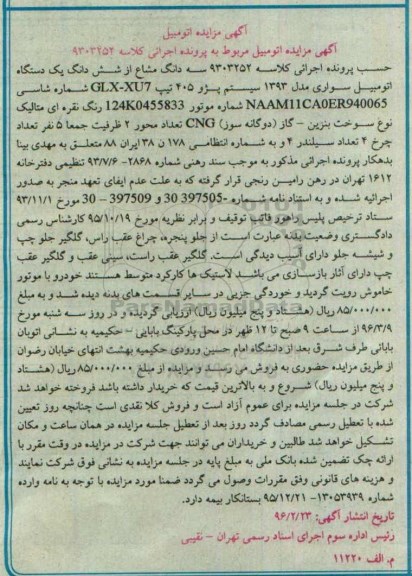 آگهی مزایده اتومبیل
آگهی مزایده اتومبیل مربوط به پرونده اجرائی کلاسه ۹۳۰۳۲۵۲
حسب پرونده اجرائی کلاسه ۹۳۰۳۲۵۲ سه دانگ مشاع از شش دانگ یک دستگاه
اتومبیل سواری مدل ۱۳۹۳ سیستم پژو ۴۰۵ تیپ GLX-XU7 شماره شاسی
NAAM11CA0ER940065 شماره موتور 124K0455833 رنگ نقره ای متالیک
نوع سوخت بنزین – گاز (دوگانه سوز) CNG تعداد محور ۲ ظرفیت جمعا ۵ نفر تعداد
چرخ ۴ تعداد سیلندر ۴ و به شماره انتظامی ۱۷۸ ن ۳۸ ایران ۸۸ متعلق به مهدی بینا
بدهکار پرونده اجرائی مذکور به موجب سند رهنی شماره ۲۸۶۸- ۹۳/۷/۶ تنظیمی دفترخانه
۱۶۱۲ تهران در رهن رامین رنجی قرار گرفته که به علت عدم ایفای تعهد منجر به صدور
اجرائیه شده و به استناد نامه شماره -397505 30 و 397509 – 30 مورخ ۹۳/۱۱/۱
ستاد ترخیص پلیس راهور فاتب توقیف و برابر نظریه مورخ ۹۵/۱۰/۱۹ کارشناس رسمی
دادگستری وضعیت بدنه عبارت است از جلو پنجره، چراغ عقب راس، گلگیر جلو چپ
و شیشه جلو دارای آسیب دیدگی است. گلگیر عقب راست، سینی عقب و گلگیر عقب
چپ دارای آثار بازسازی می باشد لاستیک ها کارکرد متوسط هستند خودرو با موتور
خاموش رویت گردید و خوردگی جزیی در سایر قسمت های بدنه دیده شد و به مبلغ
۸۵/۰۰۰/۰۰۰ ریال (هشتاد و پنج میلیون ریال) ارزیابی گردید و در روز سه شنبه مورخ
۹۶/۳/۹ از ساعت ۹ صبح تا ۱۲ ظهر در محل پارکینگ بابایی – حکیمیه به نشانی اتوبان
بابائی طرف شرق بعد از دانشگاه امام حسین ورودی حکیمیه بهشت انتهای خیابان رضوان
از طریق مزایده حضوری به فروش می رسد و مزایده از مبلغ ۸۵/۰۰۰/۰۰۰ ریال (هشتاد
و پنج میلیون ریال) شروع و به بالاترین قیمت که خریدار داشته باشد فروخته خواهد شد
شرکت در جلسه مزایده برای عموم آزاد است و فروش کلا نقدی است چنانچه روز تعیین
شده با تعطیل رسمی مصادف گردد روز بعد از تعطیل جلسه مزایده در همان ساعت و مکان
تشکیل خواهد شد طالبین و خریداران می توانند جهت شرکت در مزایده در وقت مقرر با
ارائه چک تضمین شده بانک ملی به مبلغ پایه در جلسه مزایده به نشانی فوق شرکت نمایند
و هزینه های قانونی وفق مقررات وصول می گردد ضمنا مورد مزایده با توجه به نامه وارده
شماره ۱۳۰۵۳۹۳۹- ۹۵/۱۲/۲۱ بستانکار بیمه دارد.
تاریخ انتشار آگهی: ۹۶/۲/۲۳
رئیس اداره سوم اجرای اسناد رسمی تهران – نقیبی
م. الف ۱۱۲۲۰